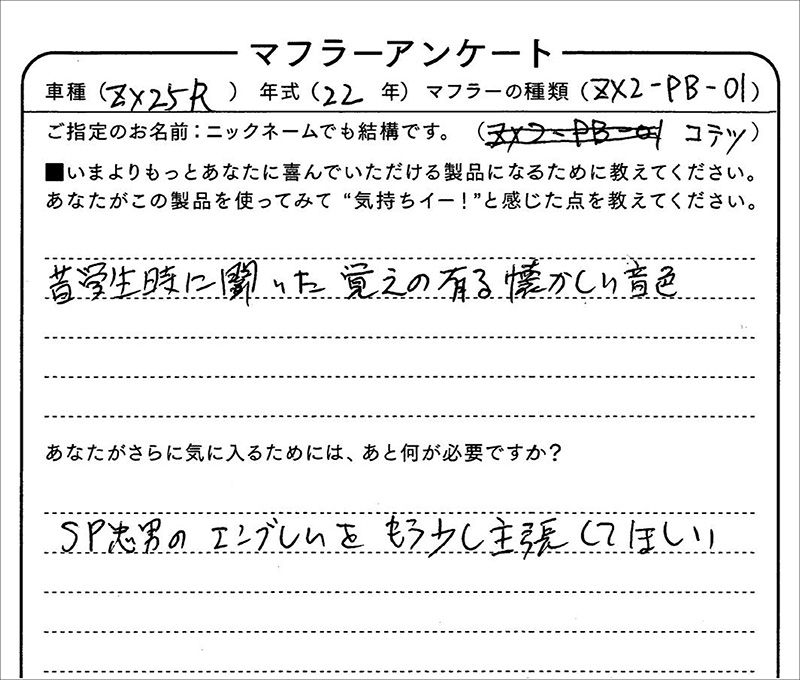 マフラーアンケート
車種（ZX25R）年式（22年）マフラーの種類（ZX2-PB-01）
ご指定のお名前：ニックネームでも結構です。（ZX2-PB-01 コテツ）
■いまよりもっとあなたに喜んでいただける製品になるために教えてください。
あなたがこの製品を使ってみて“気持ちイー！”と感じた点を教えてください。
昔学生時に聞いた覚えの有る懐かしい音色
あなたがさらに気に入るためには、あと何が必要ですか？
SP忠男のエンブレムをもう少し主張してほしい